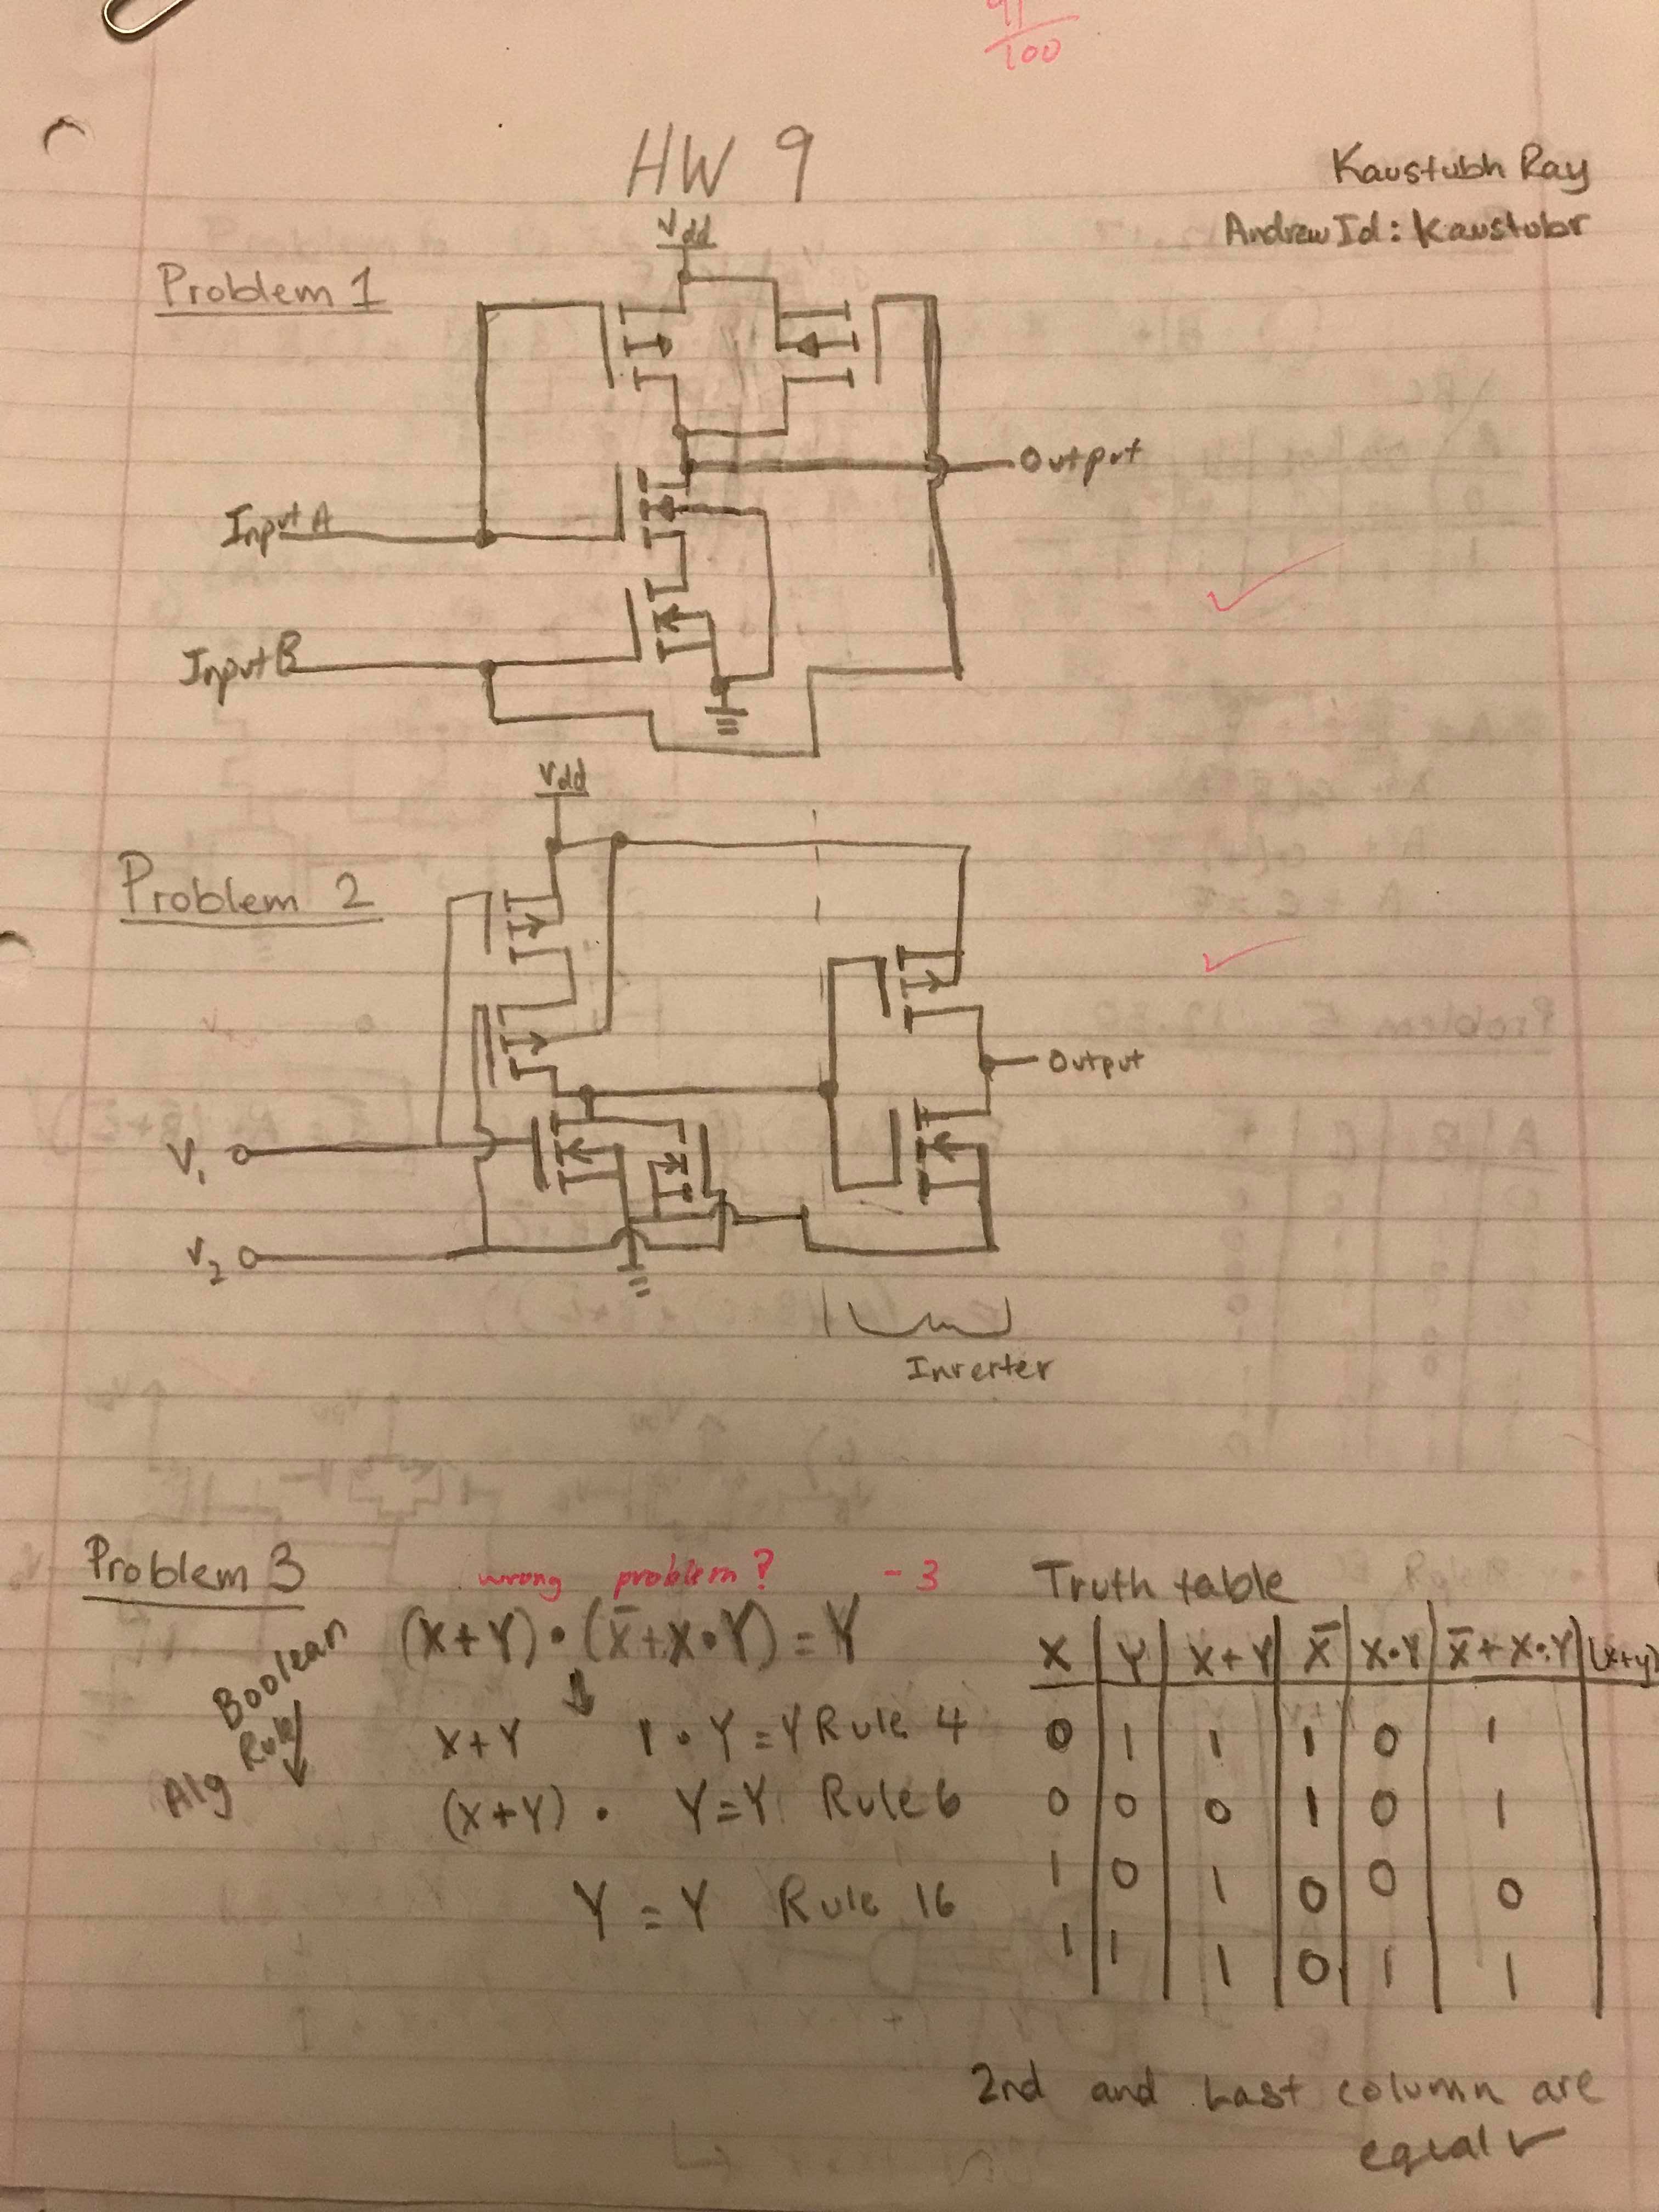 91
100
HW 9
Kaustubh Ray
Andrew Id: Kaustubr
Problem 1
Vdd
Output
Input A
Input B
Vdd
Problem 2
Output
V1
V2
Inverter
Problem 3
wrong problem? -3
(X+Y)•(X̄+X•Y)=Y
Boolean
Alg Rule
X+Y 1•Y=Y Rule 4
(X+Y)• Y=Y Rule 6
Y = Y Rule 16
Truth table
X Y X+Y X̄ X•Y X̄+X•Y (X+Y)
0 1 1 1 0 1
0 0 0 1 0 1
1 0 1 0 0 0
1 1 1 0 1 1
2nd and Last column are
equal ✓